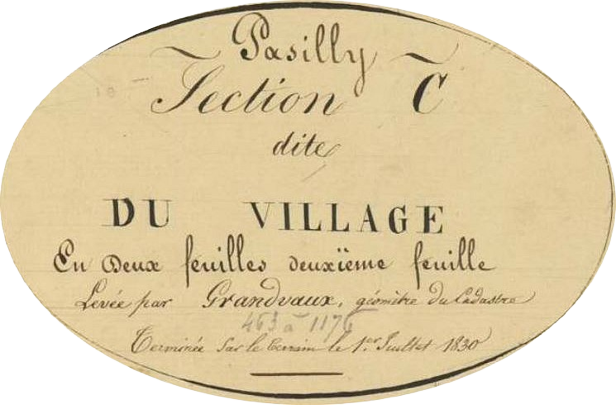 Pasilly
Section C
dite
DU VILLAGE
En Deux feuilles deuxième feuille
Levée par Grandvaux, géomètre du Cadastre
463 à 1176
Terminée Sur le terrain le 1.er Juillet 1830